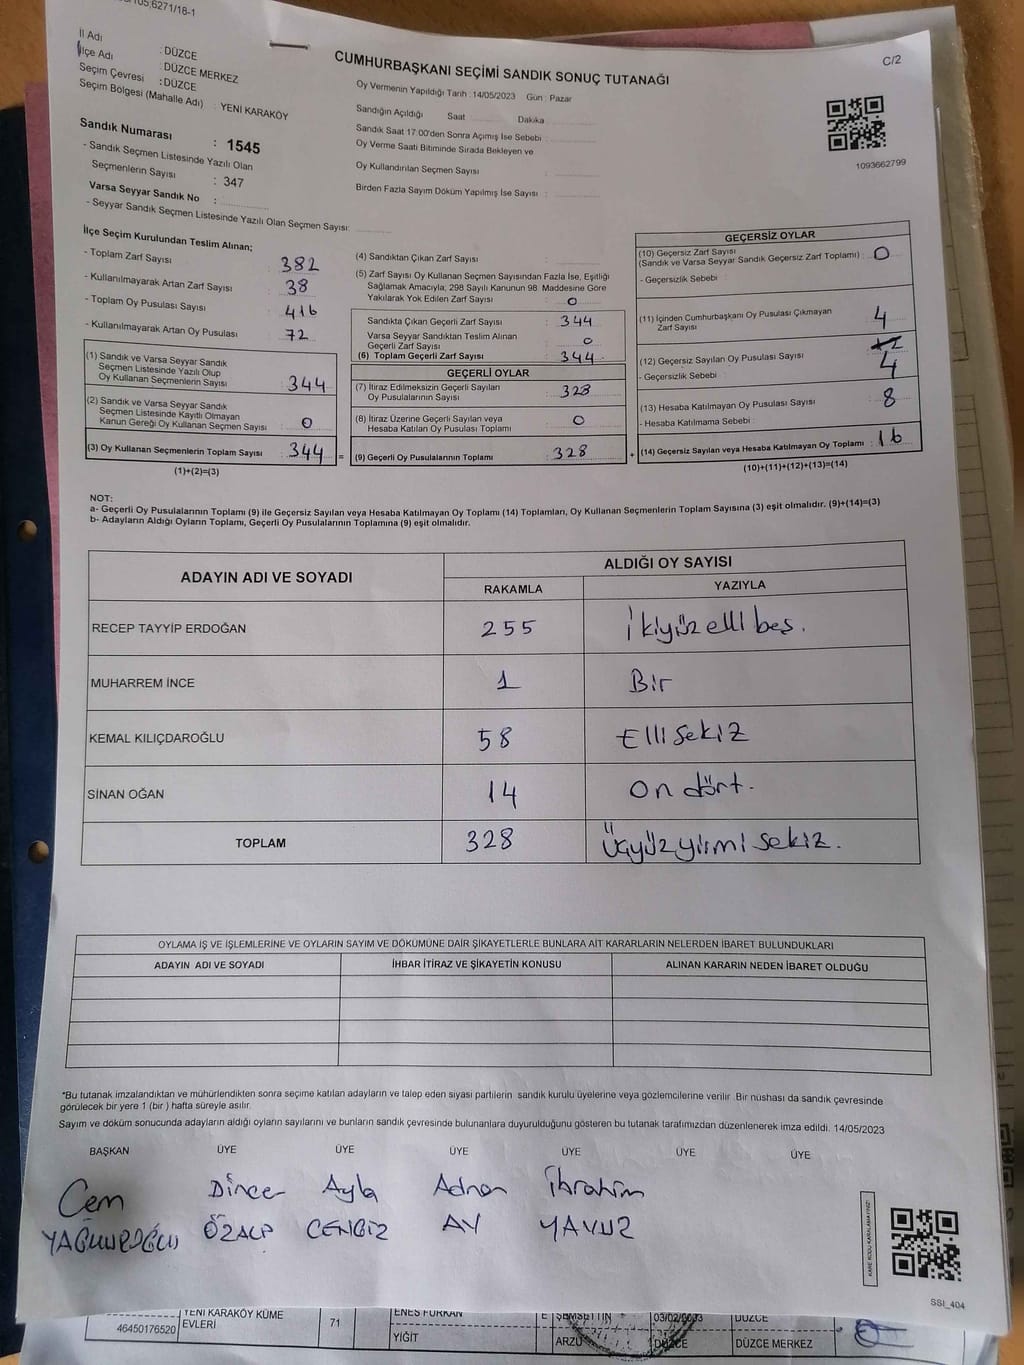 6271/18-1
C/2
İl Adı : DÜZCE
İlçe Adı : DÜZCE MERKEZ
Seçim Çevresi : DÜZCE
Seçim Bölgesi (Mahalle Adı) : YENİ KARAKÖY
CUMHURBAŞKANI SEÇİMİ SANDIK SONUÇ TUTANAĞI
Oy Vermenin Yapıldığı Tarih : 14/05/2023 Gün : Pazar
Sandığın Açıldığı Saat Dakika
Sandık Saat 17:00'den Sonra Açımış İse Sebebi :
Oy Verme Saati Bitiminde Sırada Bekleyen ve
Oy Kullandırılan Seçmen Sayısı :
Birden Fazla Sayım Döküm Yapılmış İse Sayısı :
1093662799
Sandık Numarası : 1545
- Sandık Seçmen Listesinde Yazılı Olan
Seçmenlerin Sayısı : 347
Varsa Seyyar Sandık No :
- Seyyar Sandık Seçmen Listesinde Yazılı Olan Seçmen Sayısı:
İlçe Seçim Kurulundan Teslim Alınan;
- Toplam Zarf Sayısı : 382
- Kullanılmayarak Artan Zarf Sayısı : 38
- Toplam Oy Pusulası Sayısı : 416
- Kullanılmayarak Artan Oy Pusulası : 72
(1) Sandık ve Varsa Seyyar Sandık
Seçmen Listesinde Yazılı Olup
Oy Kullanan Seçmenlerin Sayısı : 344
(2) Sandık ve Varsa Seyyar Sandık
Seçmen Listesinde Kayıtlı Olmayan
Kanun Gereği Oy Kullanan Seçmen Sayısı : 0
(3) Oy Kullanan Seçmenlerin Toplam Sayısı : 344 =
(1)+(2)=(3)
(4) Sandıktan Çıkan Zarf Sayısı :
(5) Zarf Sayısı Oy Kullanan Seçmen Sayısından Fazla İse, Eşitliği
Sağlamak Amacıyla, 298 Sayılı Kanunun 98. Maddesine Göre
Yakılarak Yok Edilen Zarf Sayısı : 0
Sandıkta Çıkan Geçerli Zarf Sayısı : 344
Varsa Seyyar Sandıktan Teslim Alınan
Geçerli Zarf Sayısı : 0
(6) Toplam Geçerli Zarf Sayısı : 344
GEÇERLİ OYLAR
(7) İtiraz Edilmeksizin Geçerli Sayılan
Oy Pusulalarının Sayısı : 328
(8) İtiraz Üzerine Geçerli Sayılan veya
Hesaba Katılan Oy Pusulası Toplamı : 0
(9) Geçerli Oy Pusulalarının Toplamı : 328 +
GEÇERSİZ OYLAR
(10) Geçersiz Zarf Sayısı
(Sandık ve Varsa Seyyar Sandık Geçersiz Zarf Toplamı) : 0
- Geçersizlik Sebebi :
(11) İçinden Cumhurbaşkanı Oy Pusulası Çıkmayan
Zarf Sayısı : 4
(12) Geçersiz Sayılan Oy Pusulası Sayısı : 4
- Geçersizlik Sebebi :
(13) Hesaba Katılmayan Oy Pusulası Sayısı : 8
- Hesaba Katılmama Sebebi :
(14) Geçersiz Sayılan veya Hesaba Katılmayan Oy Toplamı : 16
(10)+(11)+(12)+(13)=(14)
NOT:
a- Geçerli Oy Pusulalarının Toplamı (9) ile Geçersiz Sayılan veya Hesaba Katılmayan Oy Toplamı (14) Toplamları, Oy Kullanan Seçmenlerin Toplam Sayısına (3) eşit olmalıdır. (9)+(14)=(3)
b- Adayların Aldığı Oyların Toplamı, Geçerli Oy Pusulalarının Toplamına (9) eşit olmalıdır.
ADAYIN ADI VE SOYADI ALDIĞI OY SAYISI
RAKAMLA YAZIYLA
RECEP TAYYİP ERDOĞAN 255 ikiyüzelli beş.
MUHARREM İNCE 1 Bir
KEMAL KILIÇDAROĞLU 58 Elli sekiz
SİNAN OĞAN 14 on dört.
TOPLAM 328 üçyüzyirmi sekiz.
OYLAMA İŞ VE İŞLEMLERİNE VE OYLARIN SAYIM VE DÖKÜMÜNE DAİR ŞİKAYETLERLE BUNLARA AİT KARARLARIN NELERDEN İBARET BULUNDUKLARI
ADAYIN ADI VE SOYADI İHBAR İTİRAZ VE ŞİKAYETİN KONUSU ALINAN KARARIN NEDEN İBARET OLDUĞU
*Bu tutanak imzalandıktan ve mühürlendikten sonra seçime katılan adayların ve talep eden siyasi partilerin sandık kurulu üyelerine veya gözlemcilerine verilir. Bir nüshası da sandık çevresinde
görülecek bir yere 1 (bir) hafta süreyle asılır.
Sayım ve döküm sonucunda adayların aldığı oyların sayılarını ve bunların sandık çevresinde bulunanlara duyurulduğunu gösteren bu tutanak tarafımızdan düzenlenerek imza edildi. 14/05/2023
BAŞKAN ÜYE ÜYE ÜYE ÜYE ÜYE ÜYE
Cem Dinçer Ayla Adnan ibrahim
YAĞMUROĞLU ÖZALP CENGİZ AY YAVUZ
KARE KODU KARALAMAYINIZ!
SSI_404
46450176520 YENİ KARAKÖY KÜME EVLERİ 71 ENES FURKAN E ŞEMSETTİN DÜZCE
YİĞİT ARZU DÜZCE DÜZCE MERKEZ